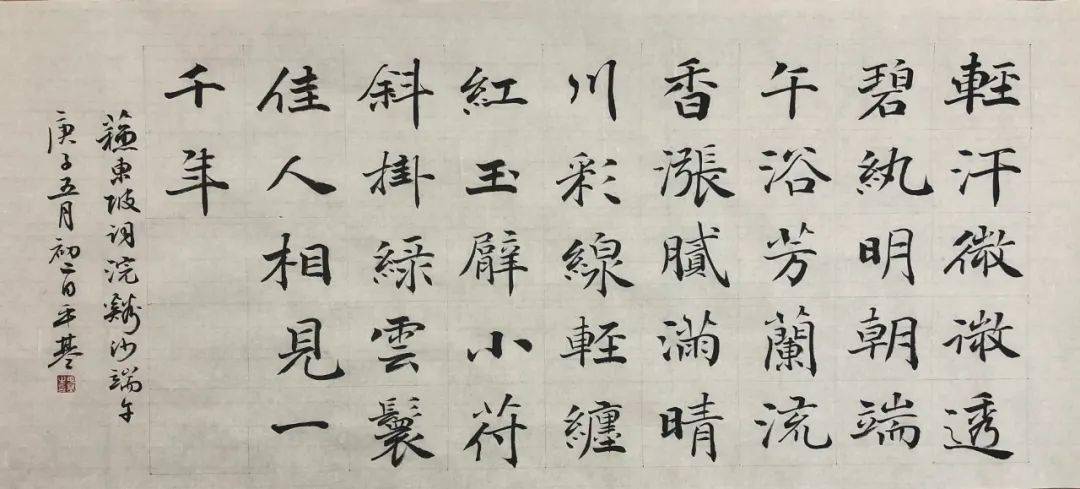 輕汗微微透
碧紈明朝端
午浴芳蘭流
香漲膩滿晴
川彩線輕纏
紅玉臂小符
斜掛綠雲鬟
佳人相見一
千年
蘇東坡詞浣谿沙端午
庚子五月初二日平基